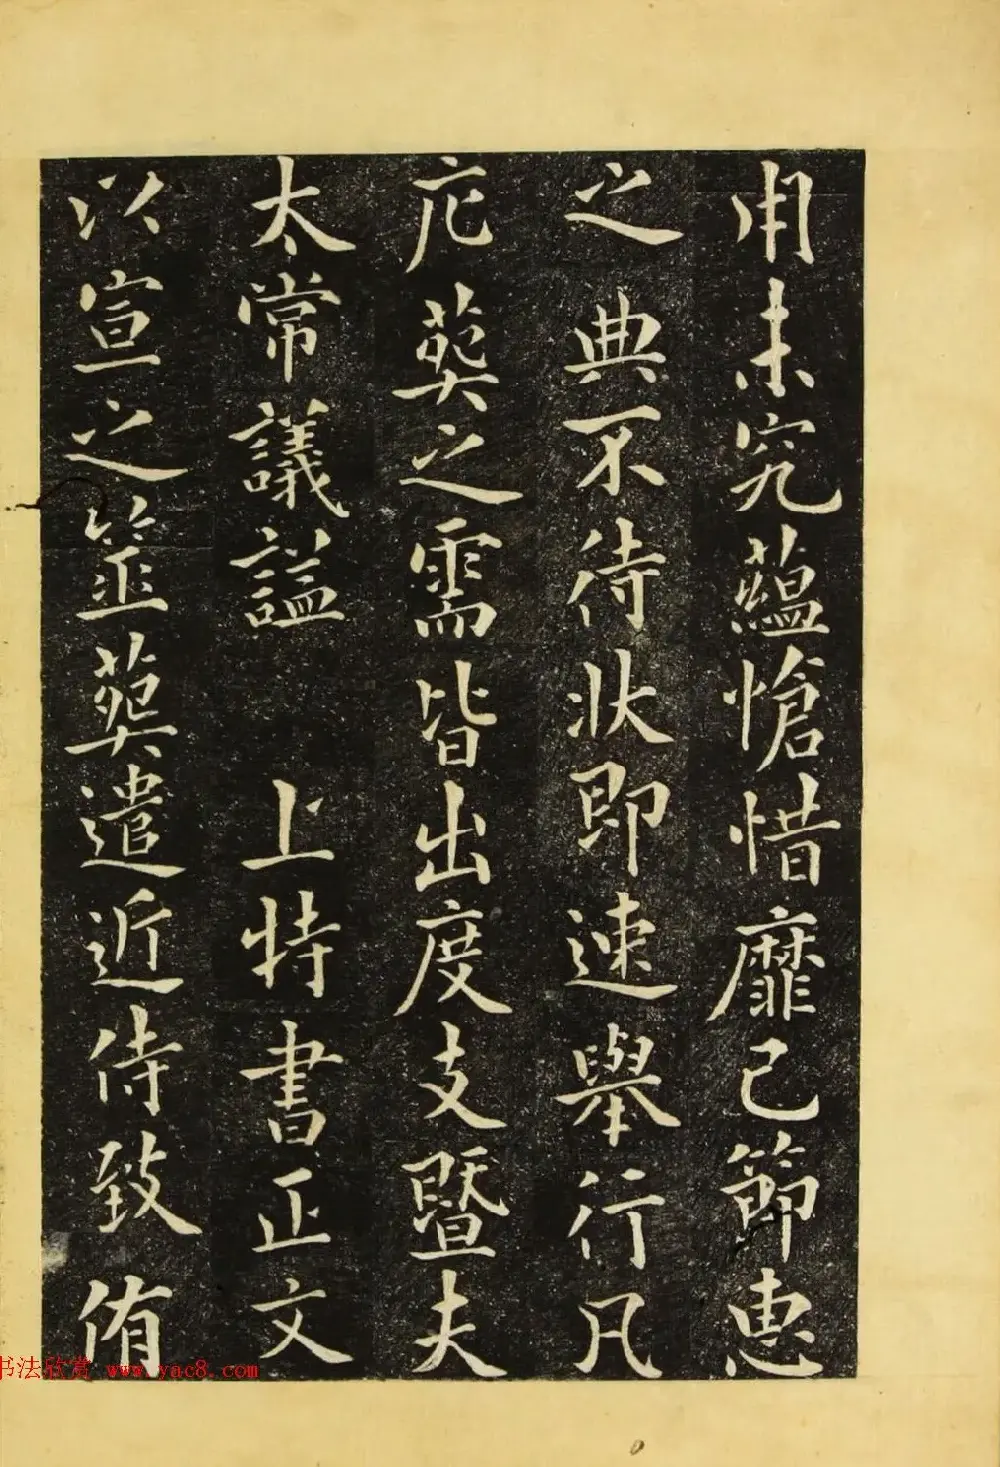 用未究蘊愴惜靡已節惠
之典不待狀即速舉行凡
庀葬之需皆出度支暨夫
太常議諡 上特書正文
以宣之筮葬遣近侍致侑
书法欣赏 www.yac8.com